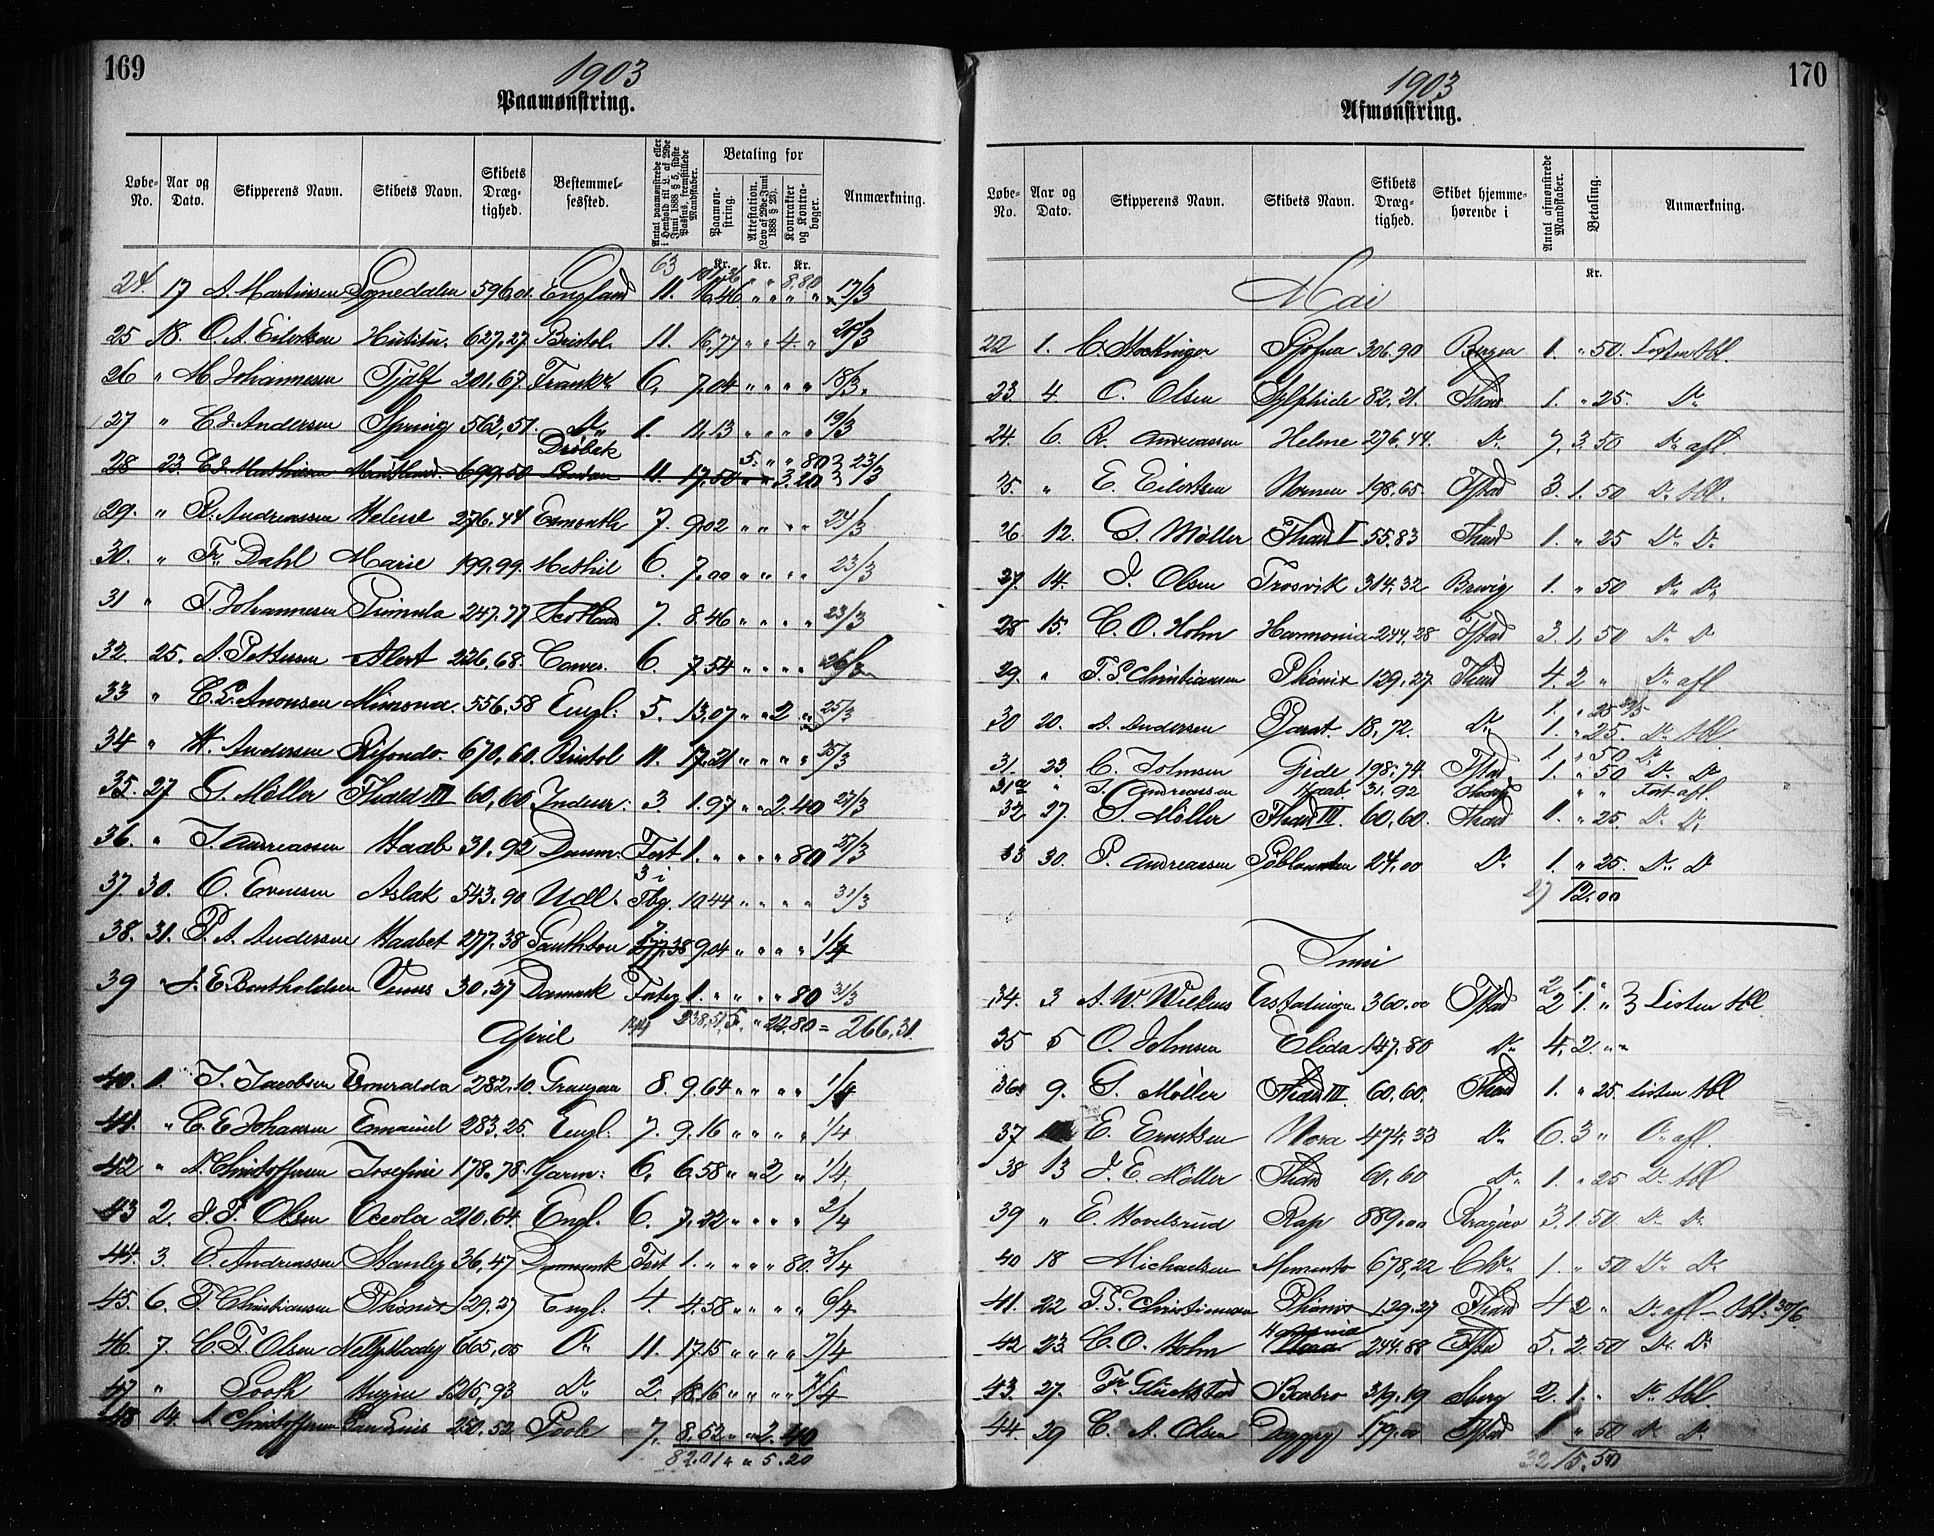 169
1903
Paamønstring.
Løbe-No. Aar og Dato. Skipperens Navn. Skibets Navn. Skibets Dræg-tighed. Bestemmel-sessted. Antal paamønstrede eller i Henhold til L. af 29de Juni 1888 § 5, sidste Passus, fremstillede Mandskaber. Betaling for Paamøn-string. Attestation. (Lov af 29de Juni 1888 § 23). Kontrakter og Kontra-bøger. Anmærkning.
Kr. Kr. Kr.
63 8.80
24. 17 A. Martinsen Sognedalen 596,01. England 11. 16,46 " " " " 17/3
25 18. O. A. Eilertsen 627,27 Bristol. 11. 16,77 " " 4. " 20/3
26 " M. Johannesen Tjalf 201,67 Frankr. 6. 7,04 " " " " 18/3.
27 " C. J. Andersen Spring 562,51. Do 1. 11,13 " " " " 19/3
Drøbak 5. " " 80 23/3
28 23. Ed. Mathisen 699,50 London 11. 17,50 " " 3.20
29. " R. Andreassen Helene 276,44 7. 9,02 " " " " 24/3
30. " Fr. Dahl Marie 199,99. Methil 6. 7,00 " " " " 23/3
31 " T. Johannesen Primula 247,77 Scotland 7. 8.46 " " " " 23/3
32. 25. A. Pettersen Alert 226,68. Cowes. 6. 7,54 " " " " 26/3
33 " C. L. Anonsen 556,58 Engl. 5. 13,07 " " 2 " 25/3
34 " A. Andersen Rifondo. 670,60. Bristol 11. 17,21 " " " " 25/3
35. 27 G. Møller Thad III 60,60 Indenr. 3. 1.97 " " 2.40 27/3
36. " J. Andreassen Haab 31.92 Danm. Fört 1. " " " " 80 27/3
3 i
37. 30. O. Evensen Aslak 543,90 Udl. Tbg. 10,44 " " " " 31/3
38. 31. P. A. Andersen Haabet 277,38 Southton 7 277,38 9,04 " " " " 1/4
39 " J. E. Bartholdsen Venus 30,37 Danmark Förtey 1. " " " " 80 31/3
April 238,51 5. " 22,80 = 266,31.
40. 1. J. Jacobsen Esmeralda 282,10. 8. 9.64 " " " " 1/4
41. " C. E. Johansen Emanuel 283,25. Engl. 7. 9.16 " " " " 1/4
42 " A. Christoffersen Josefine 178,78. Yarm: 6. 6.58 " " 2 " 1/4.
43 2. J. F. Olsen Oceola 210,64. Engl. 6. 7,22 " " " " 2/4
44. 3. O. Andreassen Stanley 36,47 Danmark Fört 1. " " " " 80. 3/4
45. 6. T. Christiansen Phønix 129.27 Engl. 4. 4.58 " " " " 6/4
46 7. C. F. Olsen Nelly Mody 665,05 Do 11. 17.15 " " " " 7/4
47 " Sooth Hugin 1215,93 Do 2. 18,16 " " " " 7/4
48 14. A. Christoffersen San Luis 250,52 Poole 7. 8,52 " " 2.40
82.01 " " 5.20
170
1903
Afmønstring.
Løbe-No. Aar og Dato. Skipperens Navn. Skibets Navn. Skibets Dræg-tighed. Skibet hjemme-hørende i Antal afmønstrede Mandskaber. Betaling. Anmærkning.
Kr.
Mai
22 1. C. Stockinger Gjøfua 306.90 Bergen 1. " 50. Listen tbl.
23. 4. C. Olsen Sylphide 82,21. Thad 1. " 25. Do
24. 6. R. Andreassen Helene 276.44. Do 7. 3.50 Do afl.
25. " E. Eilertsen Nornen 198,65. Fstad 3. 1. 50 Do tbl.
26 12. G. Møller Thad I 55.83 Thad 1. " 25 Do Do
27. 14. J. Olsen Trosvik 314,32 Brevig 1. " 50 Do Do
28 15. C. O. Holm Harmonia 244,28 Fstad 3. 1. 50 Do Do
29. " T. S. Christiansen Phønix 129,27 Thad 4. 2 " Do afl
1. " 25
30 20. A. Andersen Parat 18,72. Do 1. " 25. Do tbl.
1. " 50 Do
31. 23. C. Johnsen Gjede 198.74. Fstad. 1. " 50 Do Do
31a " J. Andreassen Haab 31,92 Thad " " Fört afl.
32 27. G. Møller Thad III. 60,60. Thad 1. " 25. Do Do
33 30. P. Andreassen 24,00 Do 1. " 25. Do Do
27 12.00
Juni
2 1. "
34. 3 A. W. Wickens 360.00 Fstad 2 1. " Listen tbl.
35 5 O. Johnsen Elida 147.80 Do 4. 2. " "
36. 9. G. Møller Thad III. 60,60. Thad 1. " 25 Listen tbl
37 E. Erntsen Nora 474,33 Do 6. 3 " Do afl.
38 13 J. E. Møller Thad 60,60 Do 1. " 25 Do tbl
39 " E. Hovelsrud Rap 889.00 Kragerø 3. 1. 50 Do Do
40 18 Michaelsen Memento 678,22 Chra 1. " 50 Do Do
41. 22 T. S. Christiansen Phønix 129.27 Thad 4 2 " Do afl - tbl. 30/6
42 23. C. O. Holm Harmonia Nora 244.88 Fstad 5. 2. 50 Do Do
43. 27. Fr. Gluckstad Barbro 319.19 2. 1. " Do tbl.
44. 29 C. A. Olsen Dagny 179.00 Fstad 1 " 50 Do Do
32 15.50